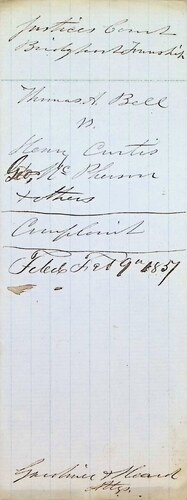 Justices Court
Township
Thomas A. Bell
vs.
Henry Curtis
Geo McPherson
& others
Complaint
Filed Feb 9th 1857
Gardiner & Hoard
Attys.